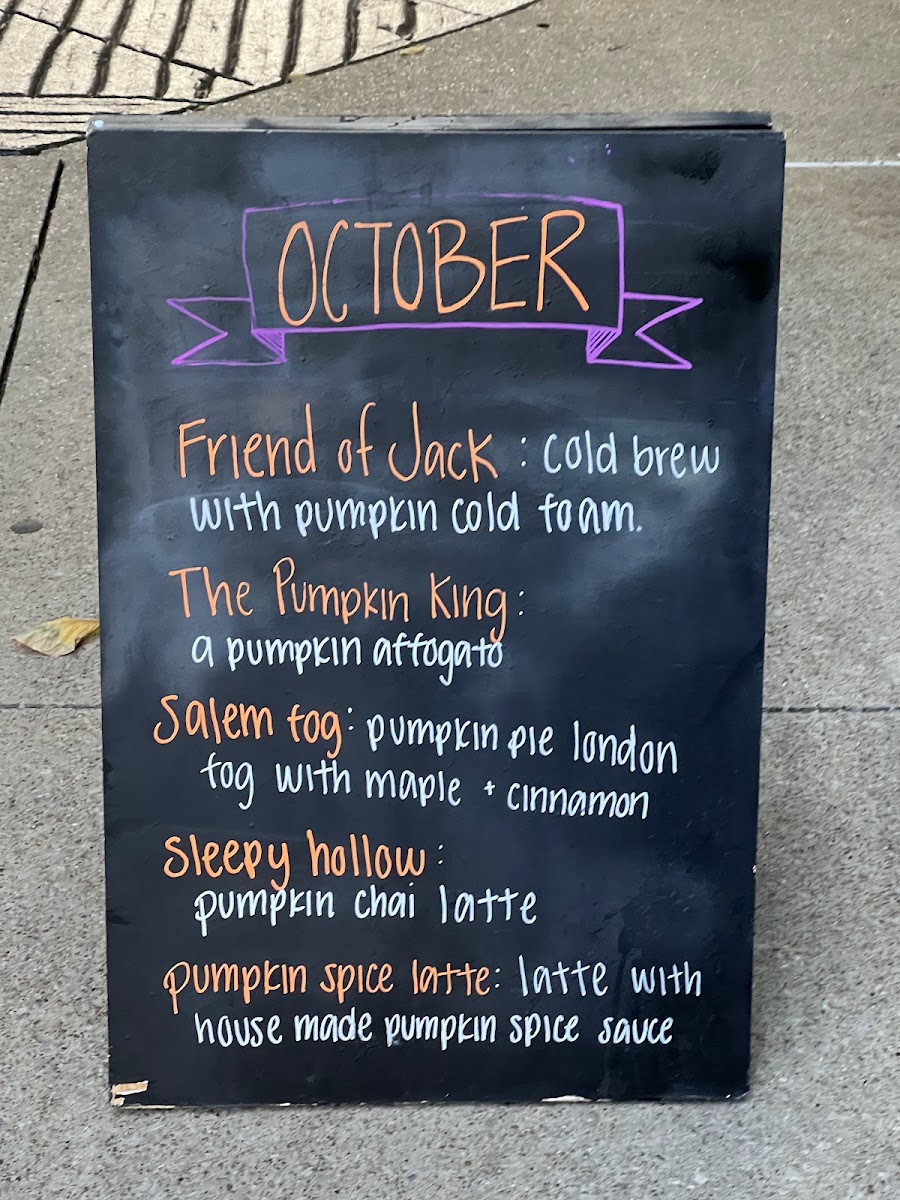 OCTOBER
Friend of Jack : cold brew
with pumpkin cold foam.
The Pumpkin King :
a pumpkin affogato
Salem fog: pumpkin pie london
fog with maple + cinnamon
Sleepy hollow :
pumpkin chai latte
pumpkin spice latte: latte with
house made pumpkin spice sauce